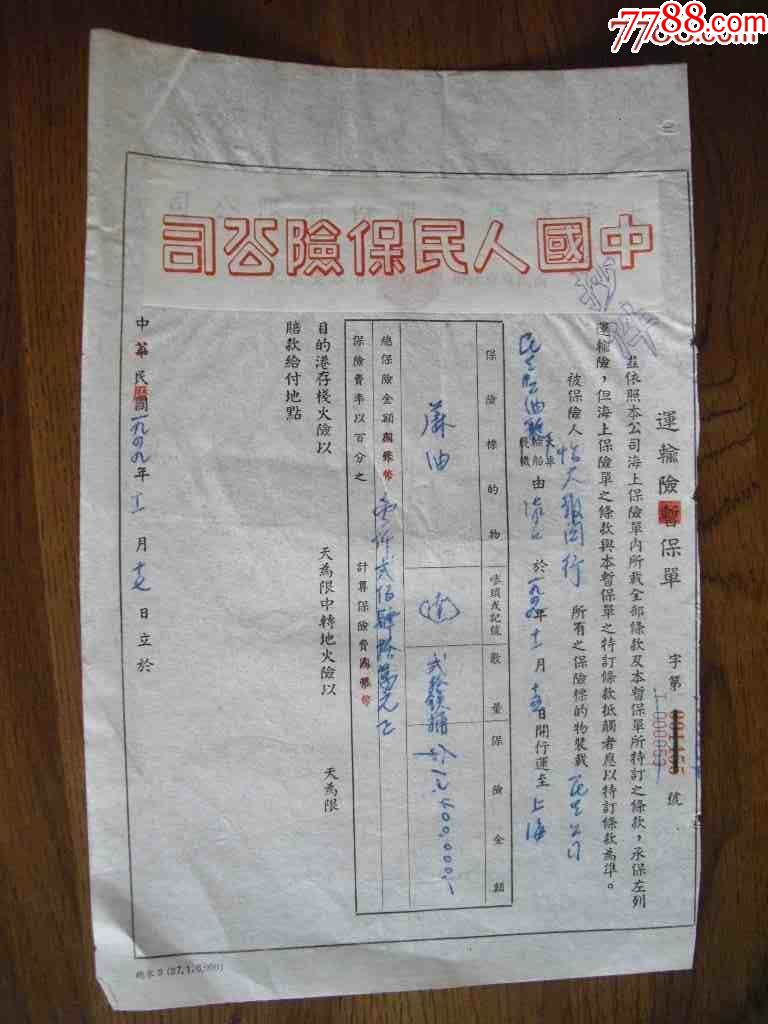 7788.com
中國人民保險公司
抄件
運輸險暫保單
字第 號
茲依照本公司海上保險單內所載全部條款及本暫保單所特訂之條款，承保左列
運輸險，但海上保險單之條款與本暫保單之特訂條款抵觸者應以特訂條款為準。
被保險人 怡大 行 所有之保險標的物裝載 民生公司
民生 油 由 於一九四九年十二月十五日開行運至上海
保險標的物
嘜頭或記號
數量
保險金額
麻油
貳拾鐵桶
總保險金額 壹仟貳佰肆拾萬元正
保險費率以百分之 計算保險費
目的港存棧火險以 天為限中轉地火險以 天為限
賠款給付地點
中華民國一九四九年十二月十七日立於